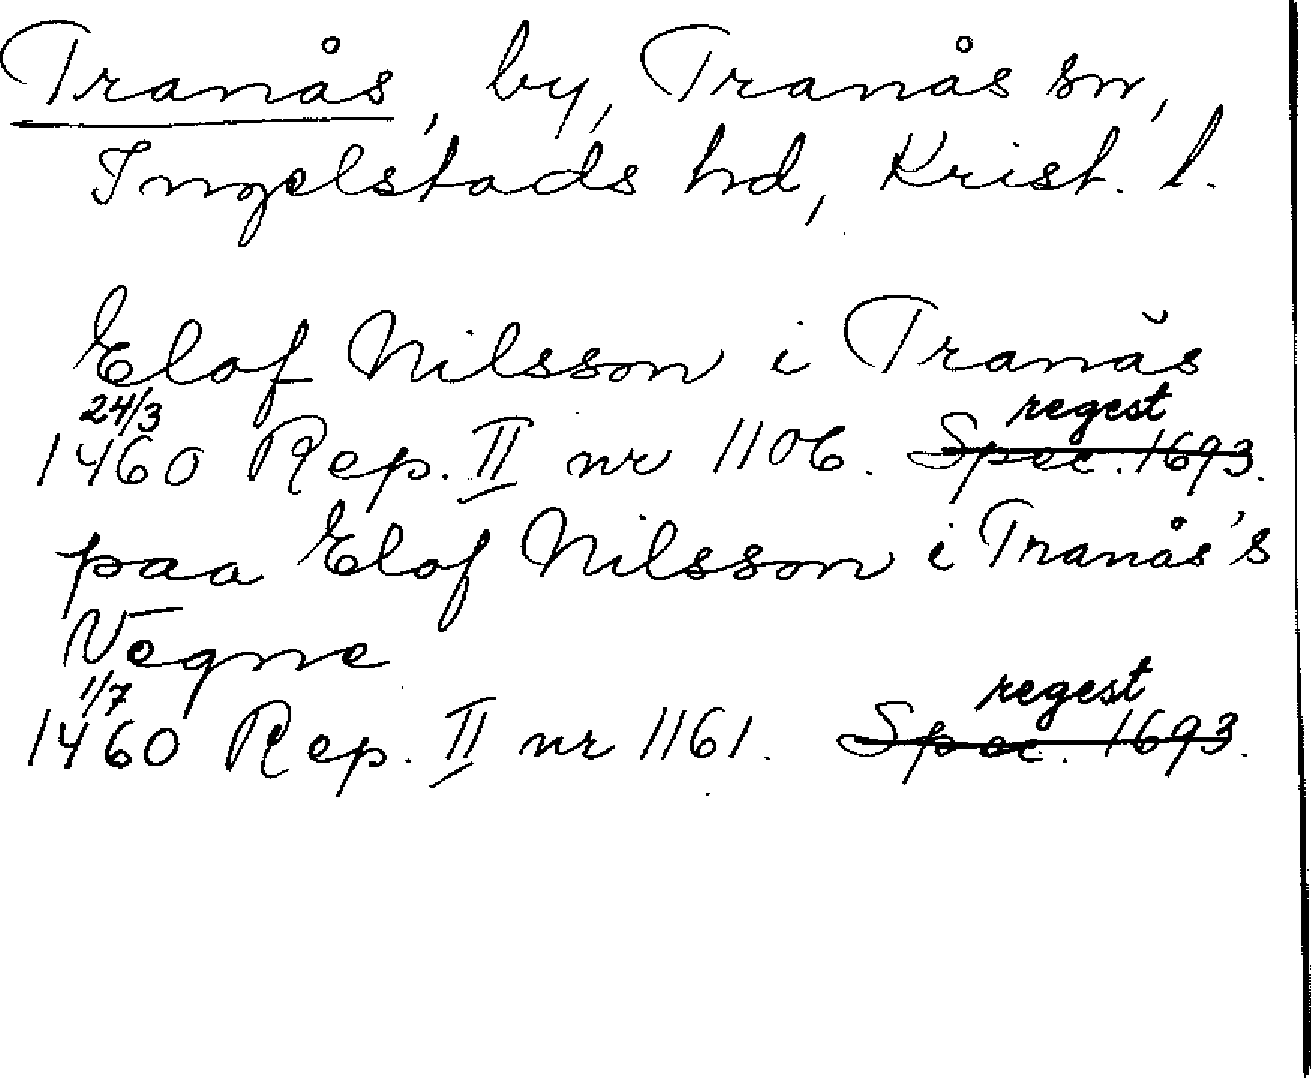 Tranås, by, Tranås sn,
Ingelstads hd, Krist. l.
Elof Nilsson i Tranås
24/3 regest
1460 Rep. II nr 1106. Spec. 1693.
paa Elof Nilsson i Tranås's
Vegne
1/7 regest
1460 Rep. II nr 1161. Spec. 1693.